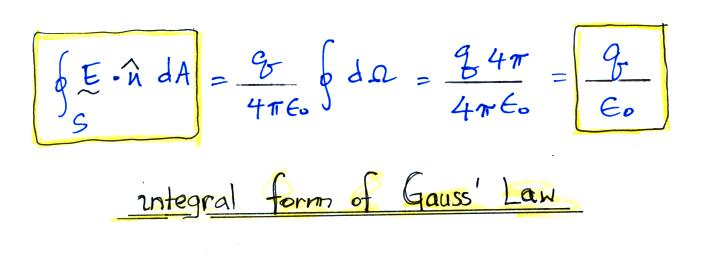 ∮_S Ḛ · n̂ dA = q/4πϵ₀ ∮ dΩ = q 4π/4πϵ₀ = q/ϵ₀
integral form of Gauss' Law